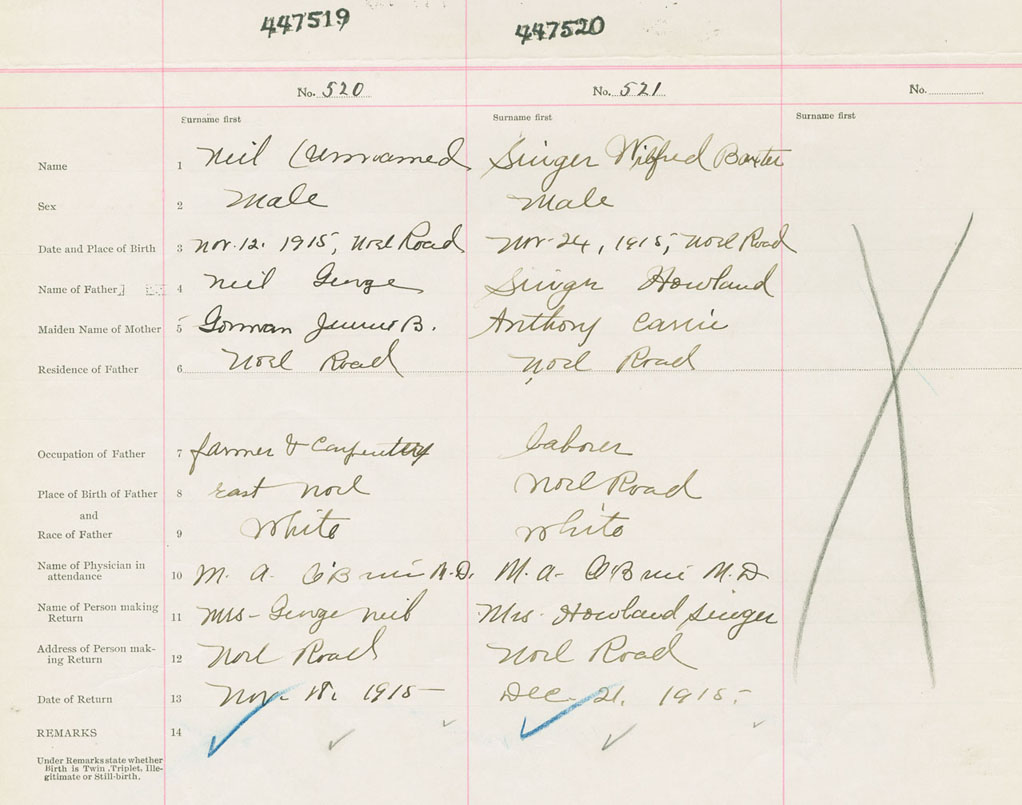 447519 447520
No. 520 No. 521 No.
Surname first Surname first Surname first
Name 1 Neil (Unnamed Singer Wilfred Baxter
Sex 2 Male Male
Date and Place of Birth 3 Nov. 12. 1915, Noel Road Nov-24, 1915, Noel Road
Name of Father 4 Neil George Singer Howland
Maiden Name of Mother 5 Gorman Jennie B. Anthony Carrie
Residence of Father 6 Noel Road Noel Road
Occupation of Father 7 farmer & Carpenter Laborer
Place of Birth of Father 8 East Noel Noel Road
and
Race of Father 9 White White
Name of Physician in
attendance 10 M. A. O'Brien M.D. M. A- O'Brien M.D
Name of Person making
Return 11 Mrs- George Neil Mrs. Howland Singer
Address of Person mak-
ing Return 12 Noel Road Noel Road
Date of Return 13 Nov. 18. 1915- Dec. 21. 1915.
REMARKS 14
Under Remarks state whether
Birth is Twin, Triplet, Ille-
gitimate or Still-birth.